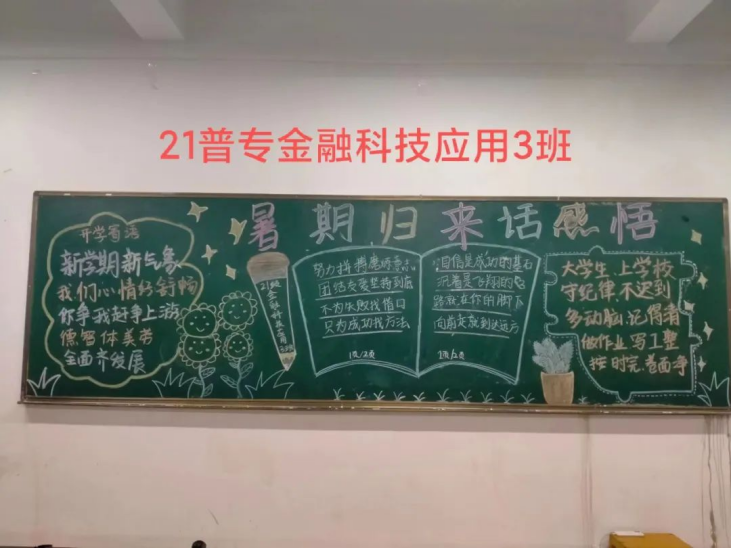 21普专金融科技应用3班
暑期归来话感悟
开学寄语
新学期新气象
我们心情好舒畅
你争我赶争上游
德智体美劳
全面齐发展
21级金融科技应用3班
努力拼搏磨
团结友爱坚持到底
不为失败找借口
只为成功找方法
1页/2页
自信是成功的基石
沉着是飞翔的
路就在你的脚下
向前走就到达远方
2页/2页
大学生、上学校
守纪律、不迟到
多动脑、记得清
做作业、写工整
按时完、卷面净